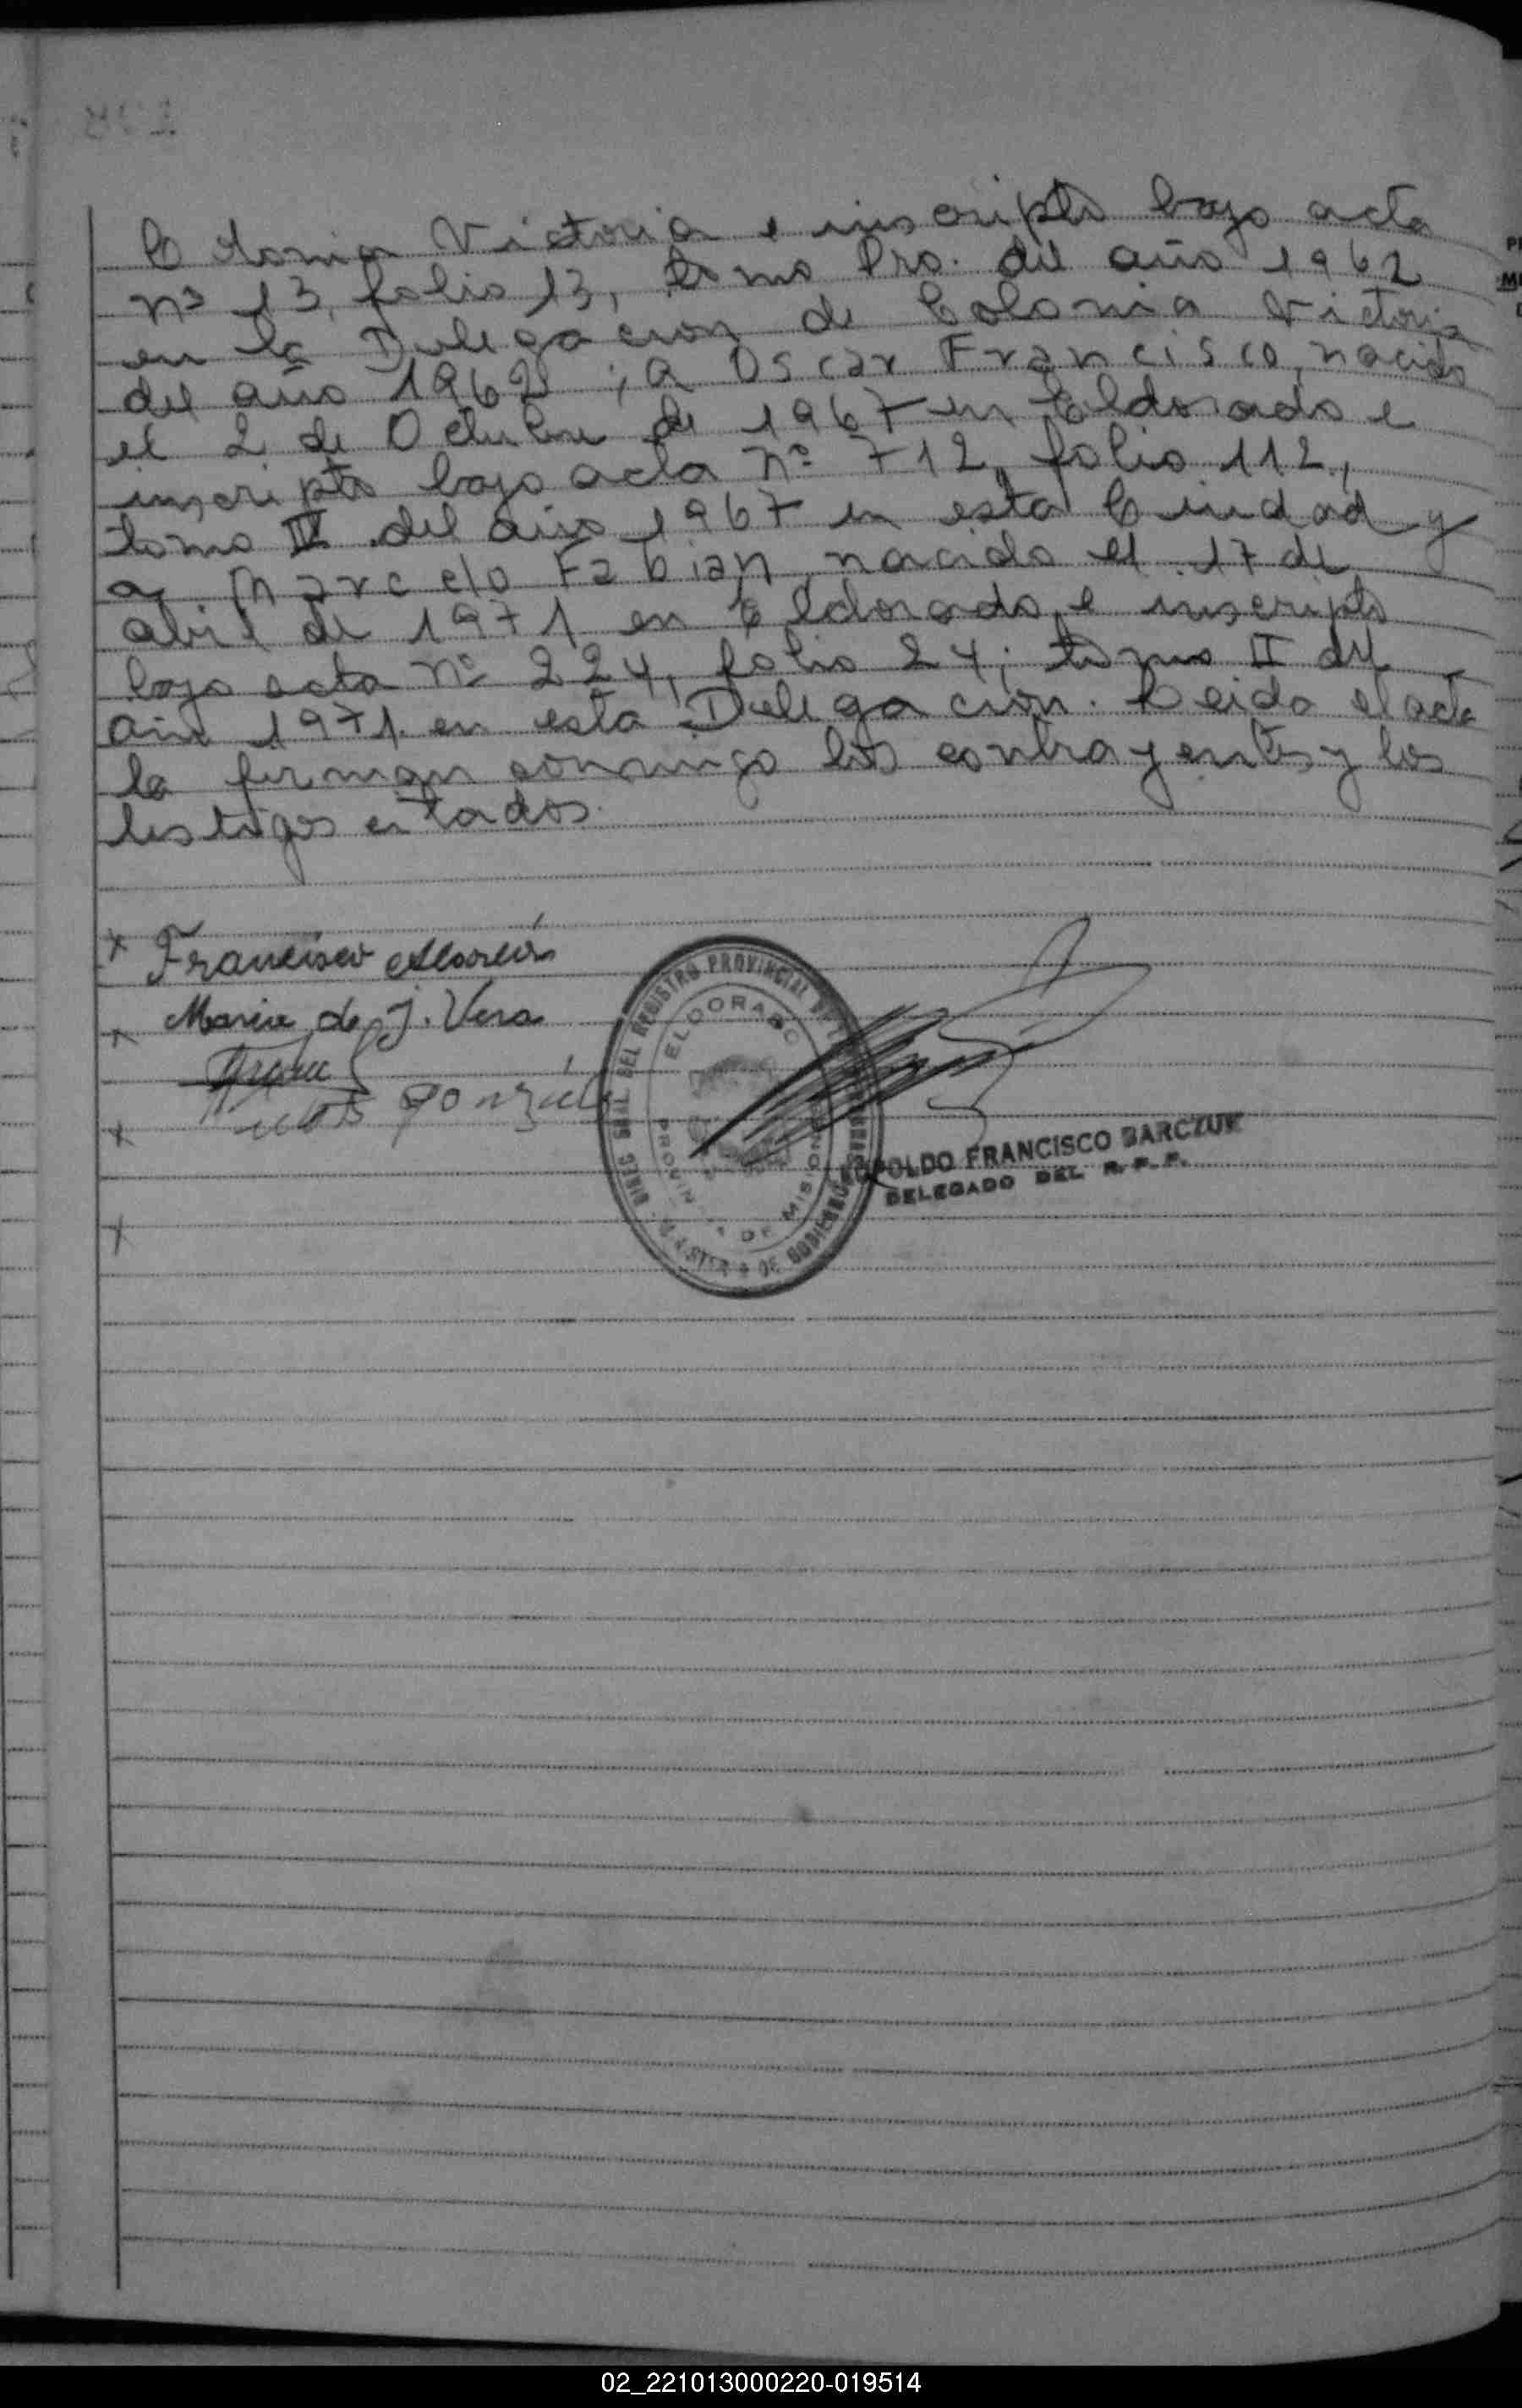 Colonia Victoria e inscripto bajo acta
nº 13, folio 13, tomo Pro. del año 1962
en la Delegacion de Colonia Victoria
del año 1962; a Oscar Francisco, nacido
el 2 de Octubre de 1967 en Eldorado e
inscripto bajo acta nº 712, folio 112,
tomo IV del año 1967 en esta Ciudad y
a Marcelo Fabian, nacido el 17 de
abril de 1971 en Eldorado, e inscripto
bajo acta nº 224, folio 24; tomo II del
año 1971 en esta Delegacion. Leida el acta
la firman conmigo los contrayentes y los
testigos citados.
x Francisco
x Maria de J. Vera
x gonzález
x
REGISTRO PROVINCIAL DE
ELDORADO
PROVINCIA DE MISIONES
DE GOBIERNO
LEOPOLDO FRANCISCO BARCZUK
DELEGADO DEL R.P.P.
02_221013000220-019514